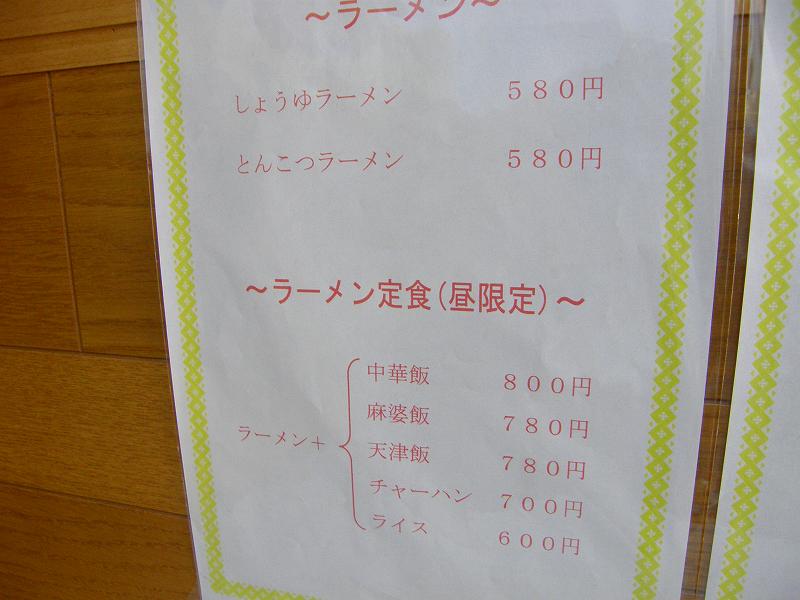 ～ラーメン～
しょうゆラーメン ５８０円
とんこつラーメン ５８０円
～ラーメン定食(昼限定)～
中華飯 ８００円
麻婆飯 ７８０円
ラーメン＋
天津飯 ７８０円
チャーハン ７００円
ライス ６００円